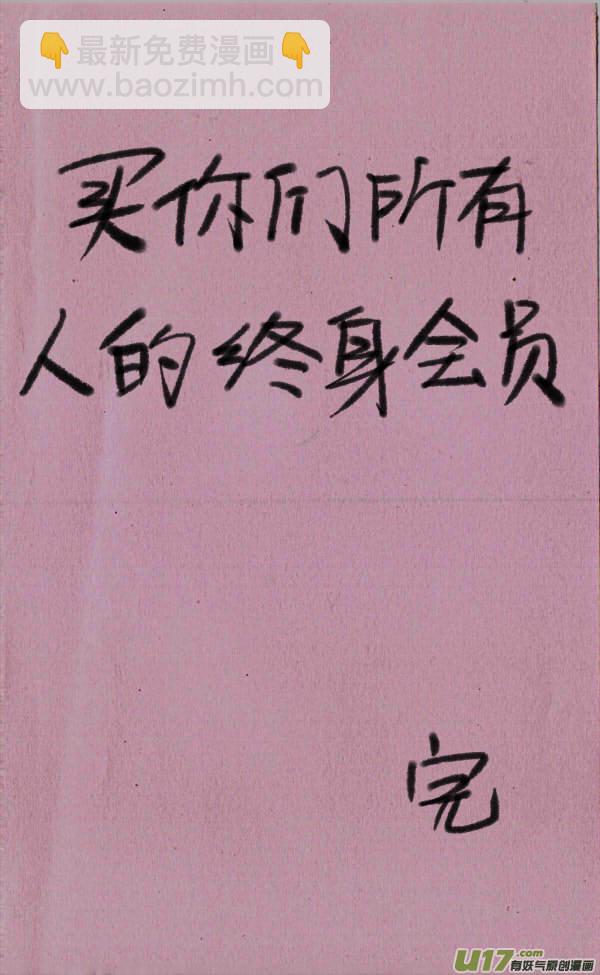 👇最新免费漫画👇
www.baozimh.com
买你们所有
人的终身会员
完
U17.com
有妖气原创漫画